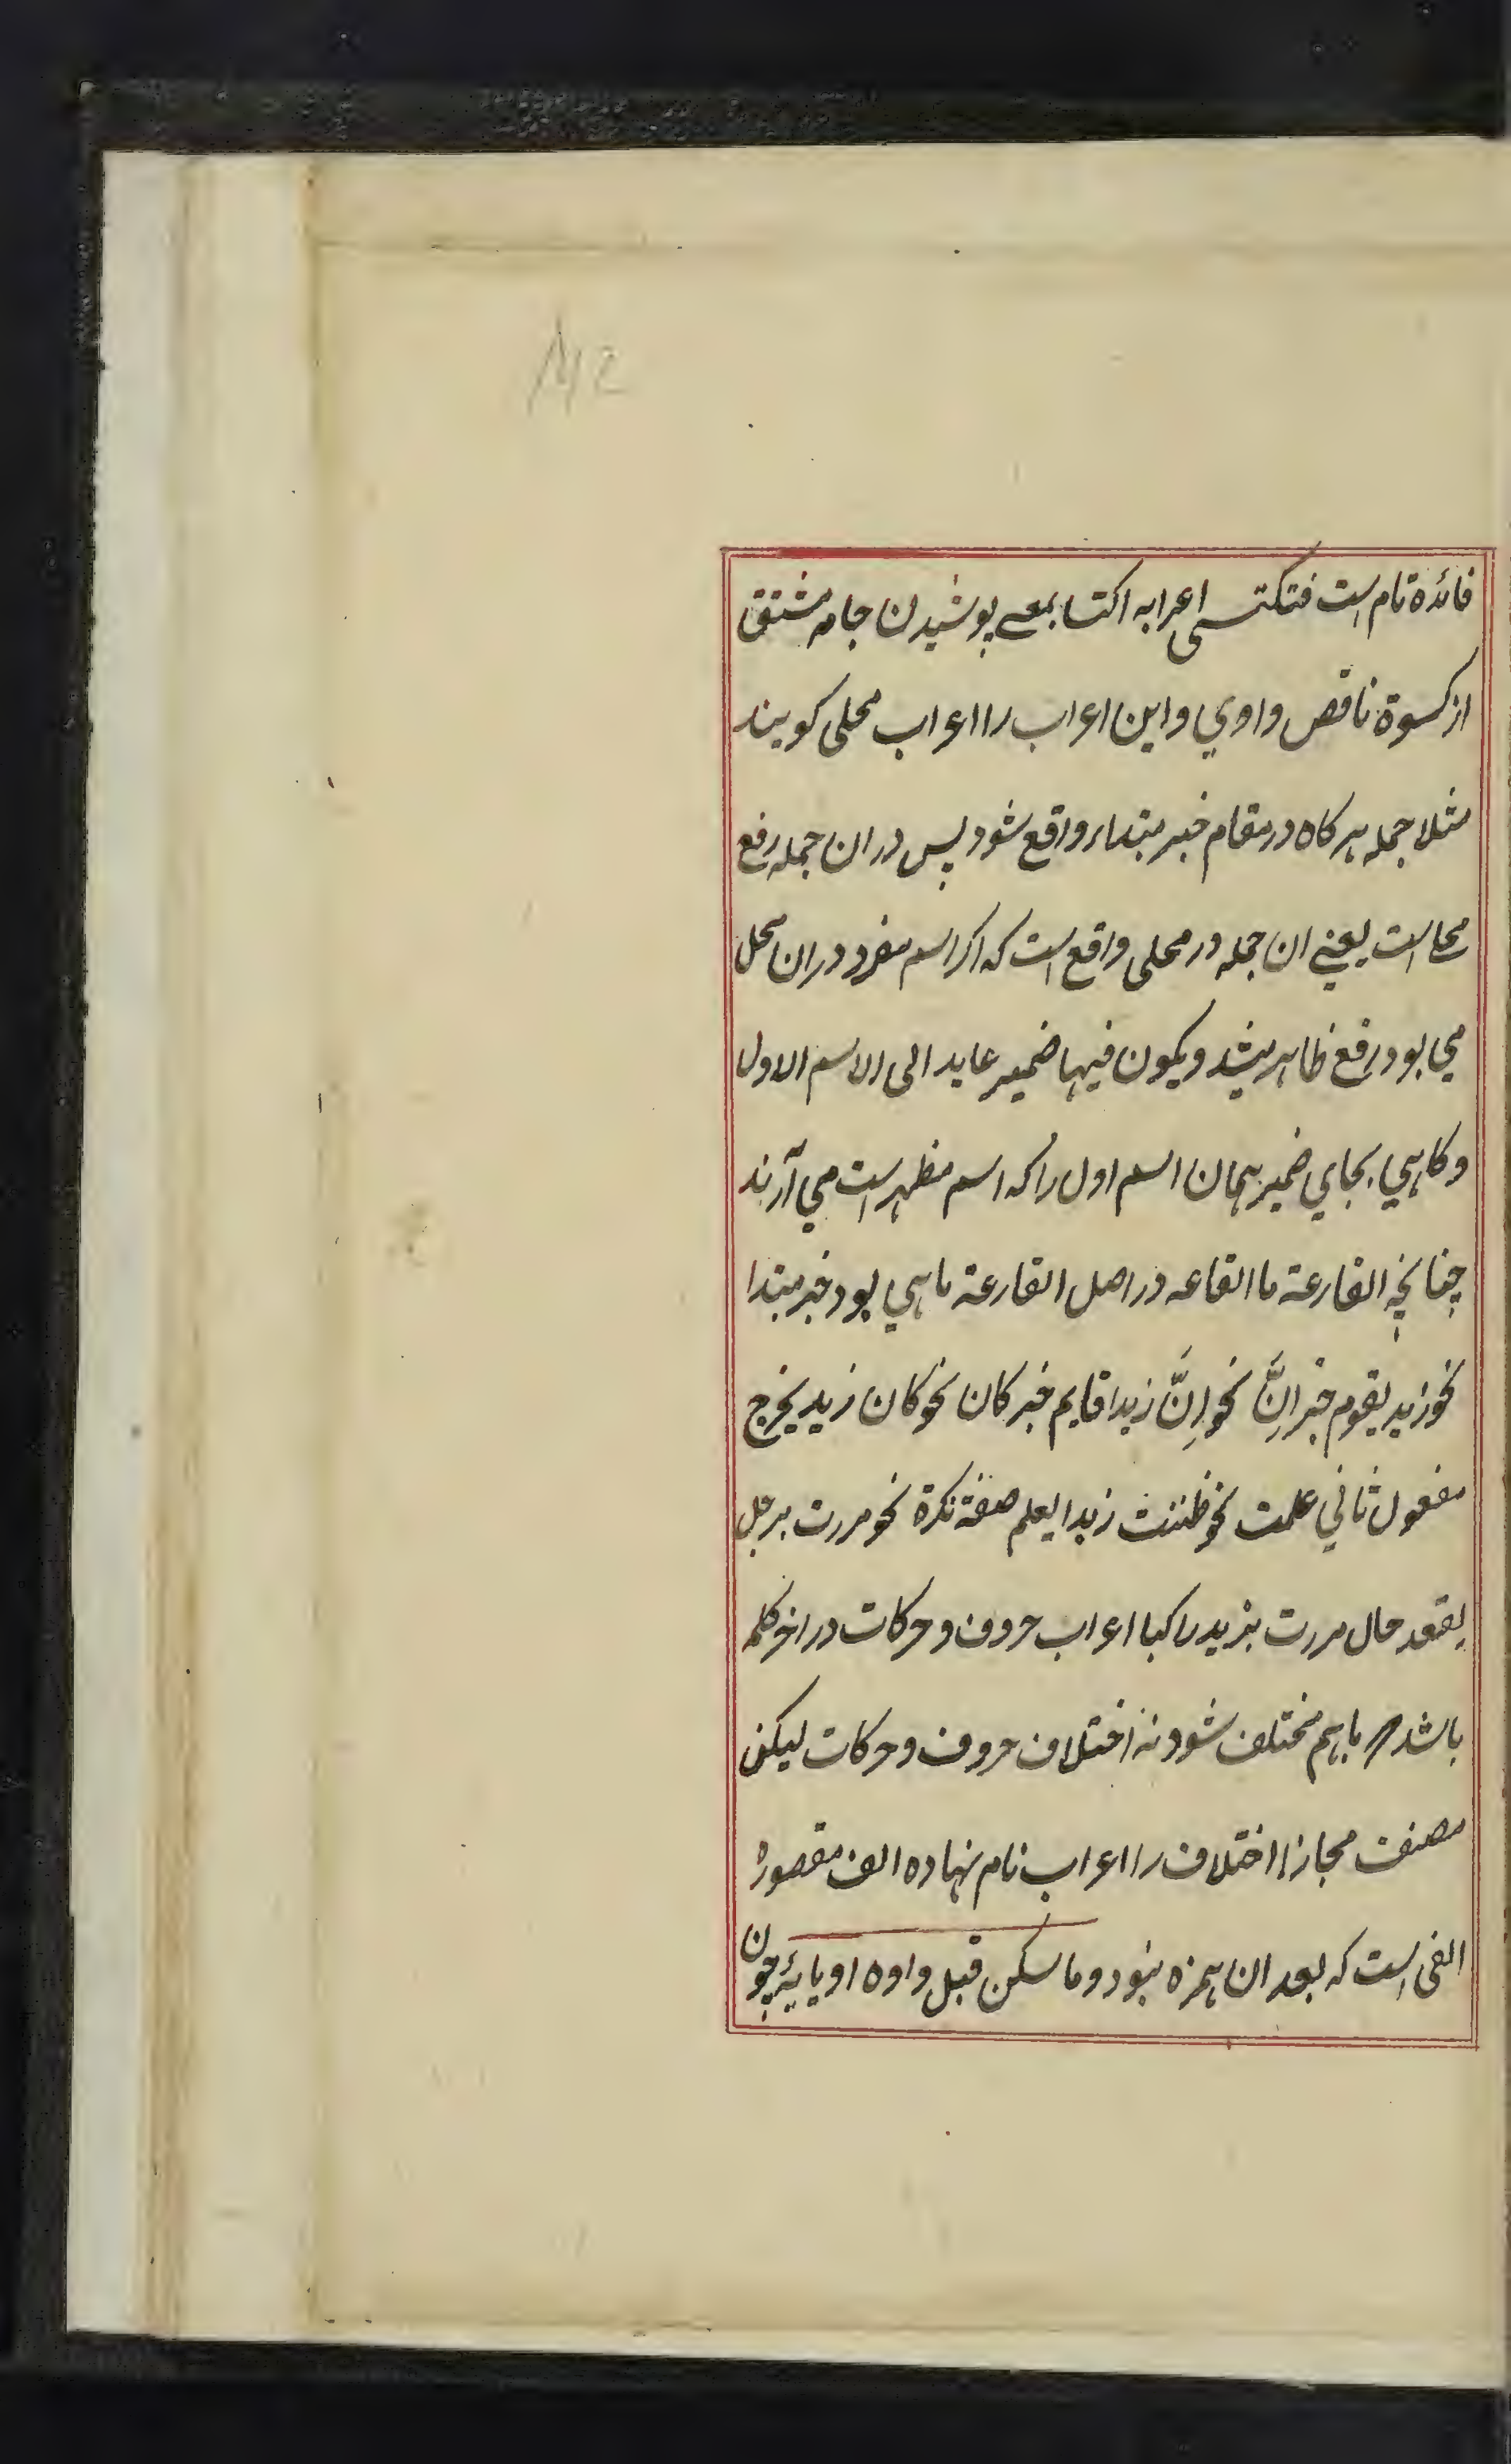 فائده تام است فتکتسی اعرابه اکتسا بمعے پوشیدن جامه مشتق
از کسوة ناقص واوي واین اعراب را اعراب محلی کویند
مثلا جمله هر کاه در مقام خبر مبتداء واقع شود پس در ان جمله رفع
محلا است یعنے ان جمله در محلی واقع است که اکر اسم مفرد در ان محل
می بود رفع ظاهر میشد ویکون فیها ضمیر عاید الی الاسم الاول
و کاهي بجاي ضمیر همان اسم اول را که اسم مظهر است مي آرند
چنانچه القارعة ما القاعه در اصل القارعة ما هي بود خبر مبتدا
نحو زید یقوم خبر اِنَّ نحو اِنَّ زیدا قایم خبر کان نحو کان زید یخرج
مفعول ثاني علمت نحو ظننت زیدا یعلم صفة نکرة نحو مررت برجل
یقعد حال مررت بزید راکبا اعراب حروف و حرکات در اخر کلمه
باشد باهم مختلف شود نه اختلاف حروف و حرکات لیکن
مصنف مجازا اختلاف را اعراب نام نهاده الف مقصوره
الفی است که بعد ان همزه نبود وما سکن قبل واوه او یایه چون